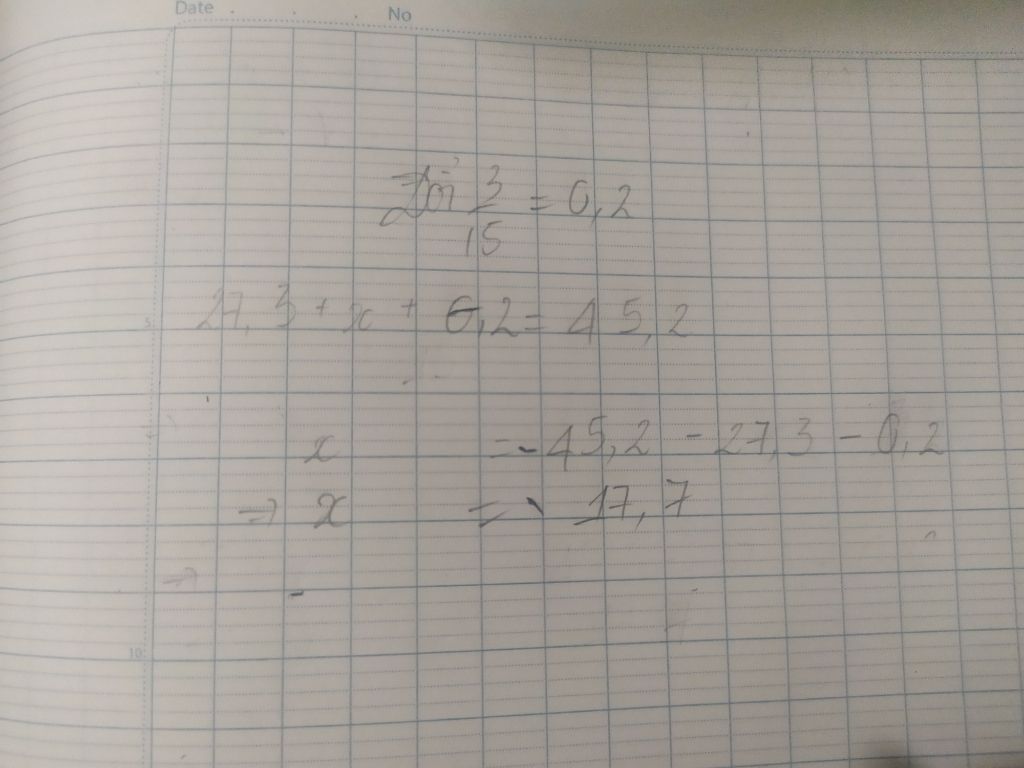 Date . . . No
Đổi 3/15 = 0,2
27,3 + x + 0,2 = 45,2
5
x = 45,2 - 27,3 - 0,2
=> x = 17,7
10